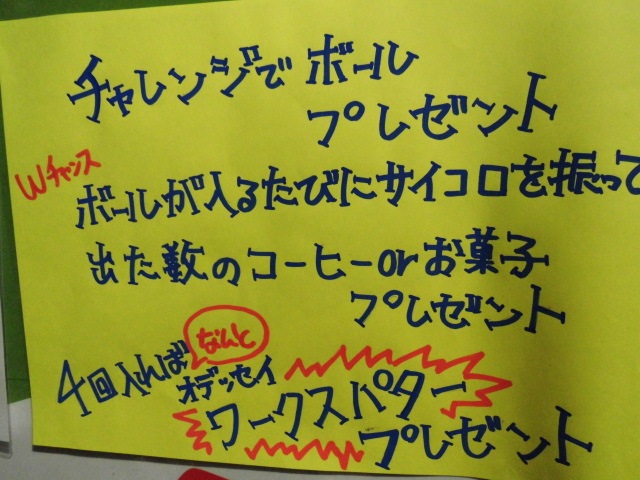 チャレンジで ボール
プレゼント
Wチャンス
ボールが入るたびにサイコロを振って
出た数のコーヒーorお菓子
プレゼント
なんと
4回入れば オデッセイ
ワークスパター
プレゼント